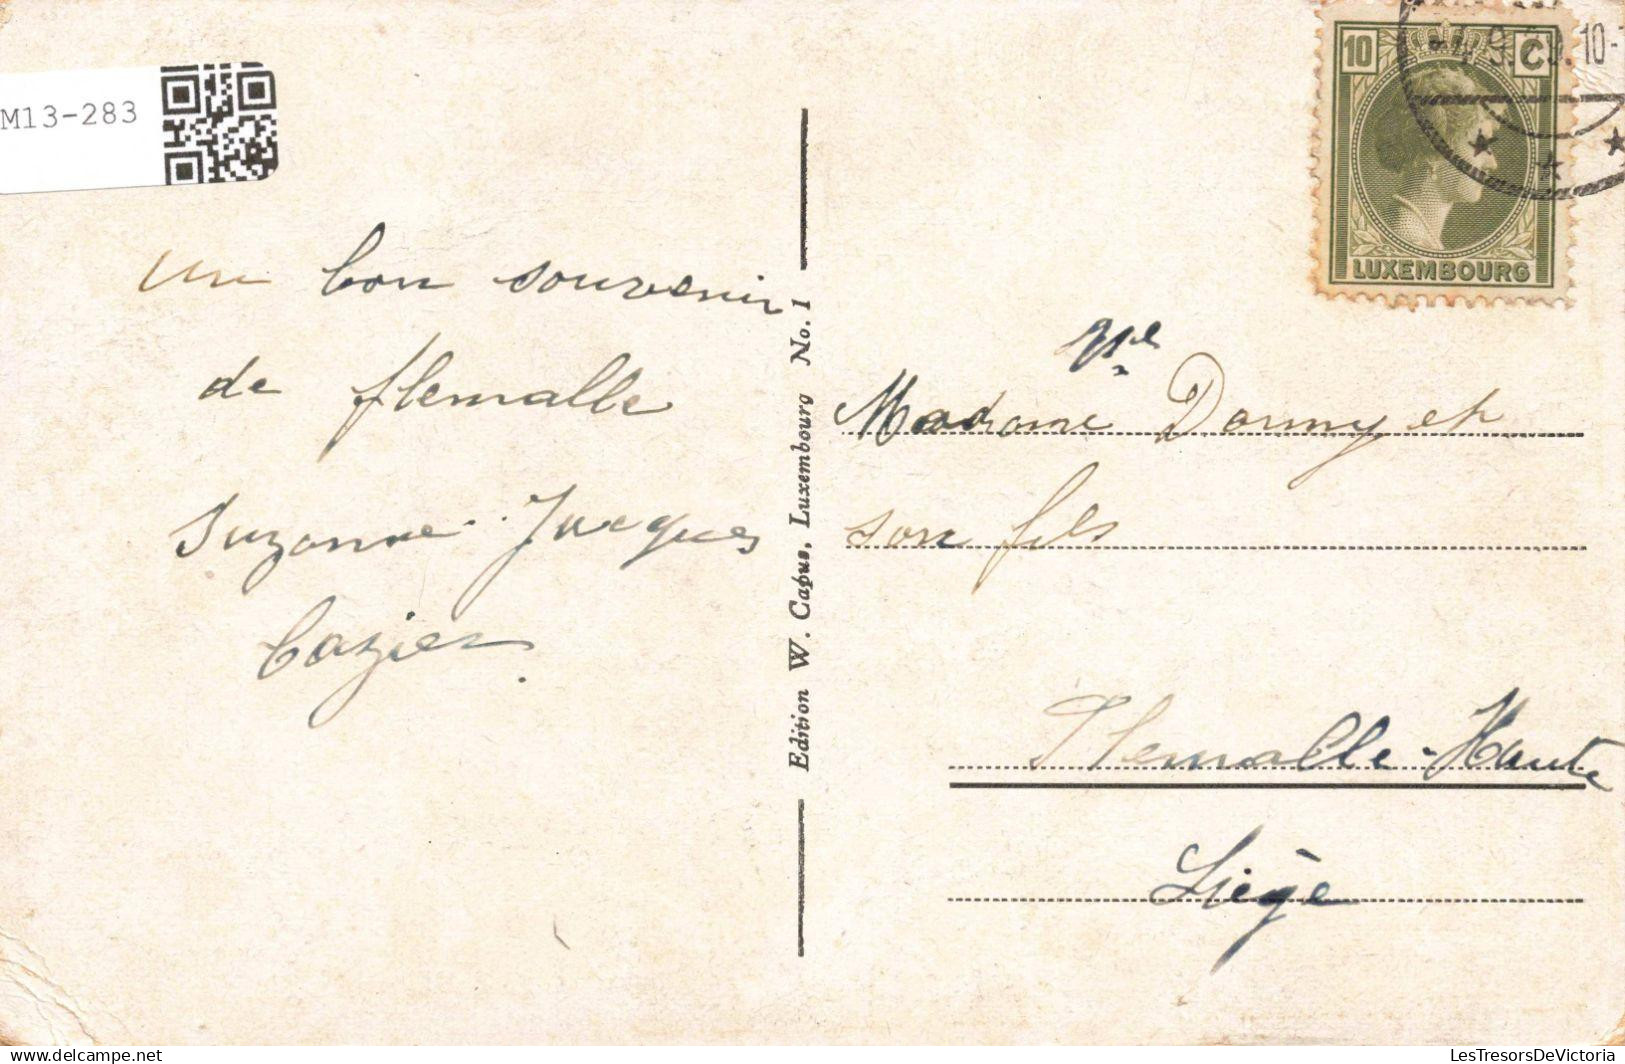 M13-283
un bon souvenir
de flemalle
Suzanne Jacques
Cazier
Edition W. Capus, Luxembourg No. 1
10 C
LUXEMBOURG
10-
Madame Dormy et
son fils
Flemalle-Haute
Liège
LesTresorsDeVictoria
delcampe.net